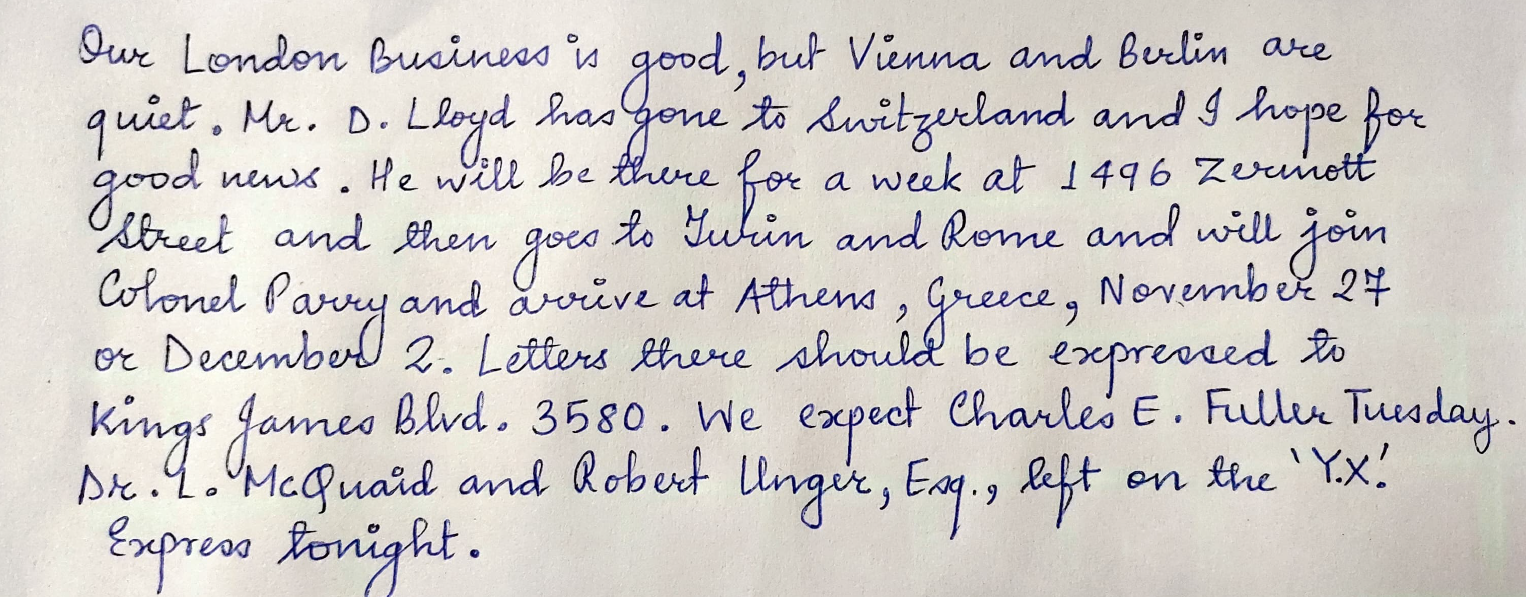 Our London Business is good, but Vienna and Berlin are
quiet. Mr. D. Lloyd has gone to Switzerland and I hope for
good news. He will be there for a week at 1496 Zermott
Street and then goes to Turin and Rome and will join
Colonel Parry and arrive at Athens, Greece, November 27
or December 2. Letters there should be expressed to
Kings James Blvd. 3580. We expect Charles E. Fuller Tuesday.
Dr. L. McQuaid and Robert Unger, Esq., left on the 'Y.X.'
Express tonight.